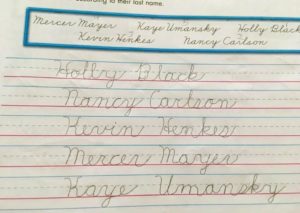 according to their last name.
Mercer Mayer Kaye Umansky Holly Black
Kevin Henkes Nancy Carlson
Holly Black
Nancy Carlson
Kevin Henkes
Mercer Mayer
Kaye Umansky